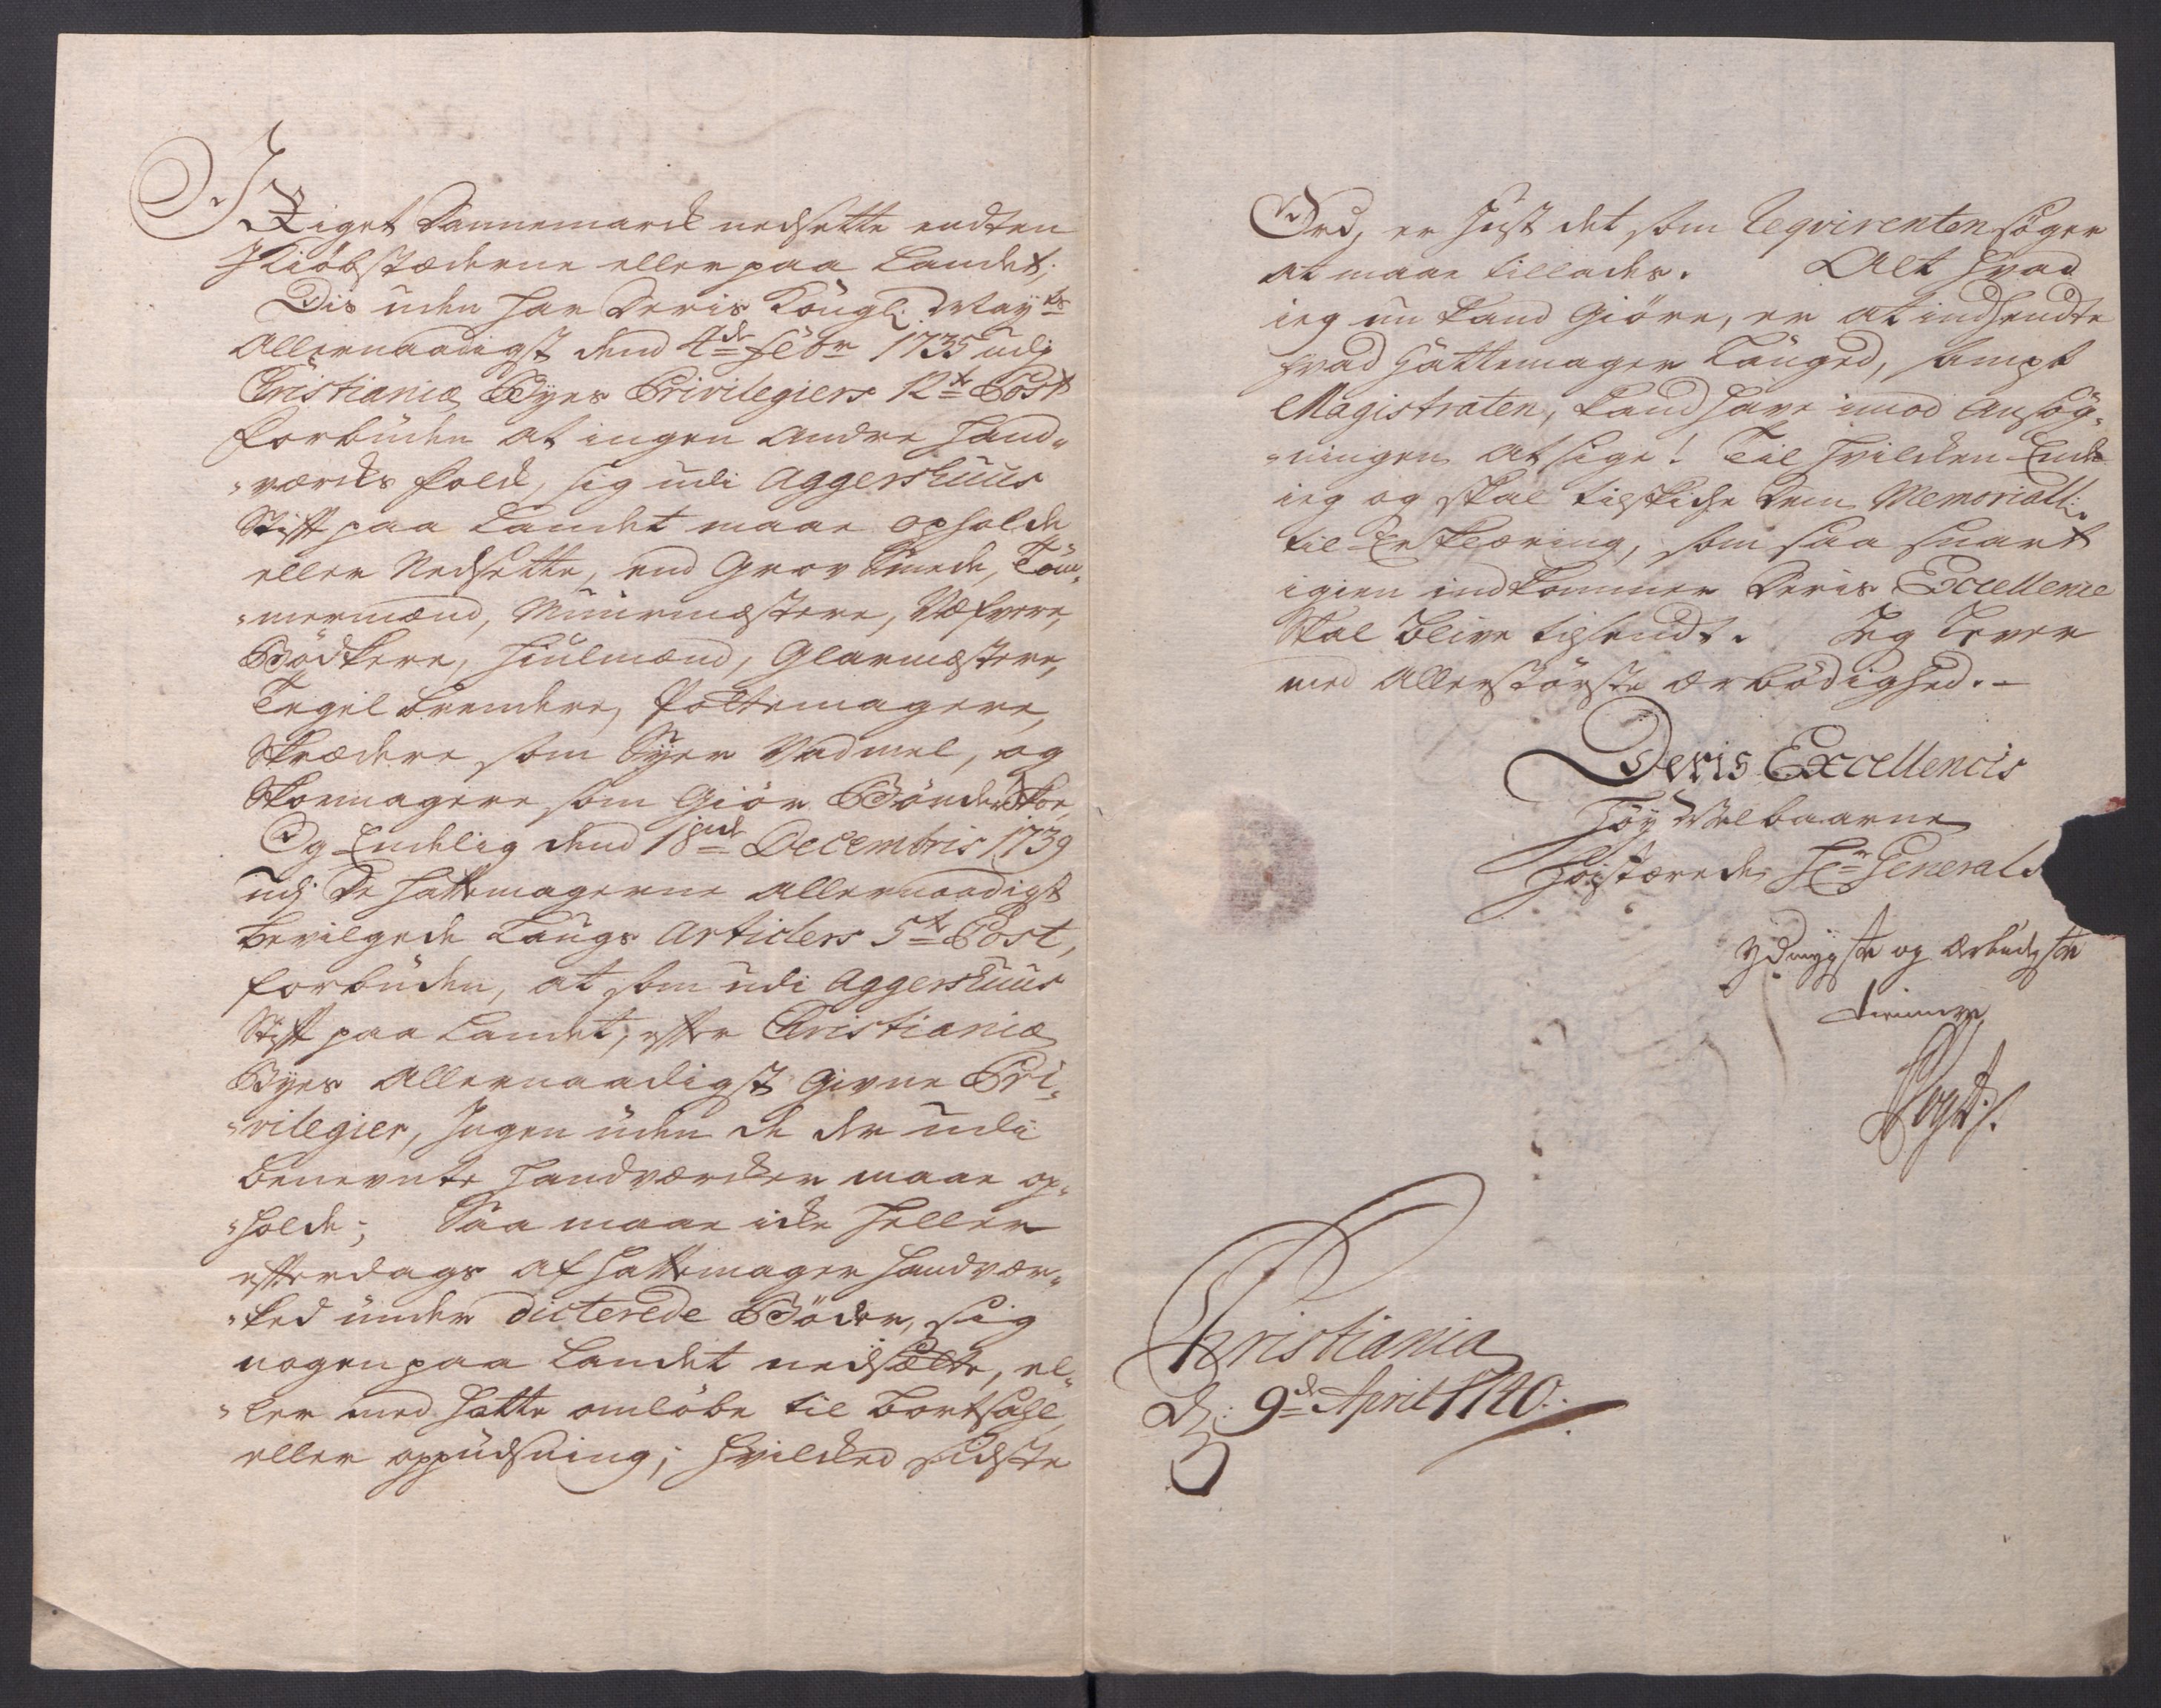 I Riget Dannemarck nedsette endten
I Kiöbstæderne eller paa Landet;
Dis uden har Deris Kongl: May:ts
Allernaadigst dend 4de Febr 1735 udj
Christianiæ Byes Privilegiers 12te Post
forbuden at ingen andre Hand-
-værcks folck, sig udi Aggershuus
Stift paa Landet maae opholde
eller Nedsette, end Grov Smede, Töm-
-mermænd, Muurmæstere, Væfvere,
Bödkere, Hiulmænd, Glarmæstere,
Tegel brendere, Pottemagere,
Skrædere som Syer Vadmel, og
Skomagere som Giör Bönder Skoe,
Og Endelig dend 18de Decembris 1739
udj De Hattemagerne allernaadigst
bevilgede Laugs Articlers 5te Post,
forbuden, at som udi Aggershuus
Stift paa Landet, efter Christianiæ
Byes Allernaadigst Givne Pri-
-vilegier, Ingen uden de der udi
benevnte Handværcker maae op-
-holde; Saa maae icke heller
efterdags af Hattemager Handvær-
-ked under dicterede Böder, sig
nogen paa Landet nedsætte, el-
-ler med Hatte omlöbe til bortsahl,
eller oppudsning; hvilcked sidste
Ord, er just det som Reqvirenten söger
at maae tillades. Alt hvad
ieg nu kand Giöre, er at indhendte
hvad Hattemager Lauged, sampt
Magistraten, kand have imod Ansög-
-ningen at sige! Til hvilcken Ende
ieg og skal tilskicke Dem Memoriall:
til Erklæring, som saa snart
igien indkommer Deris Excellence
Skal blive tilsendt. Jeg lever
med Allerstörste ærbödighed.
Deris Excellencis
Höy Velbaarne
Höistærede Hr Generals
Ydmygste og ærbödigste
tienere
Vogt
Christiania
D: 9de April 1740.